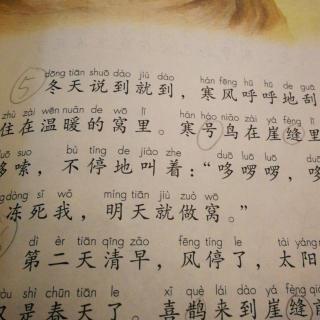 dōng tiān shuō dào jiù dào hán fēng hū hū de guā
⑤冬天说到就到，寒风呼呼地刮
zhù zài wēn nuǎn de wō lǐ hán háo niǎo zài yá fèng lǐ
住在温暖的窝里。寒号鸟在崖缝里
duō suo bù tíng de jiào zhe duō luō luō duō
哆嗦，不停地叫着：“哆啰啰，哆
dòng sǐ wǒ míng tiān jiù zuò wō
冻死我，明天就做窝。”
dì èr tiān qīng zǎo fēng tíng le tài yáng
第二天清早，风停了，太阳
yòu shì chūn tiān le xǐ què lái dào yá fèng qián
又是春天了。喜鹊来到崖缝前